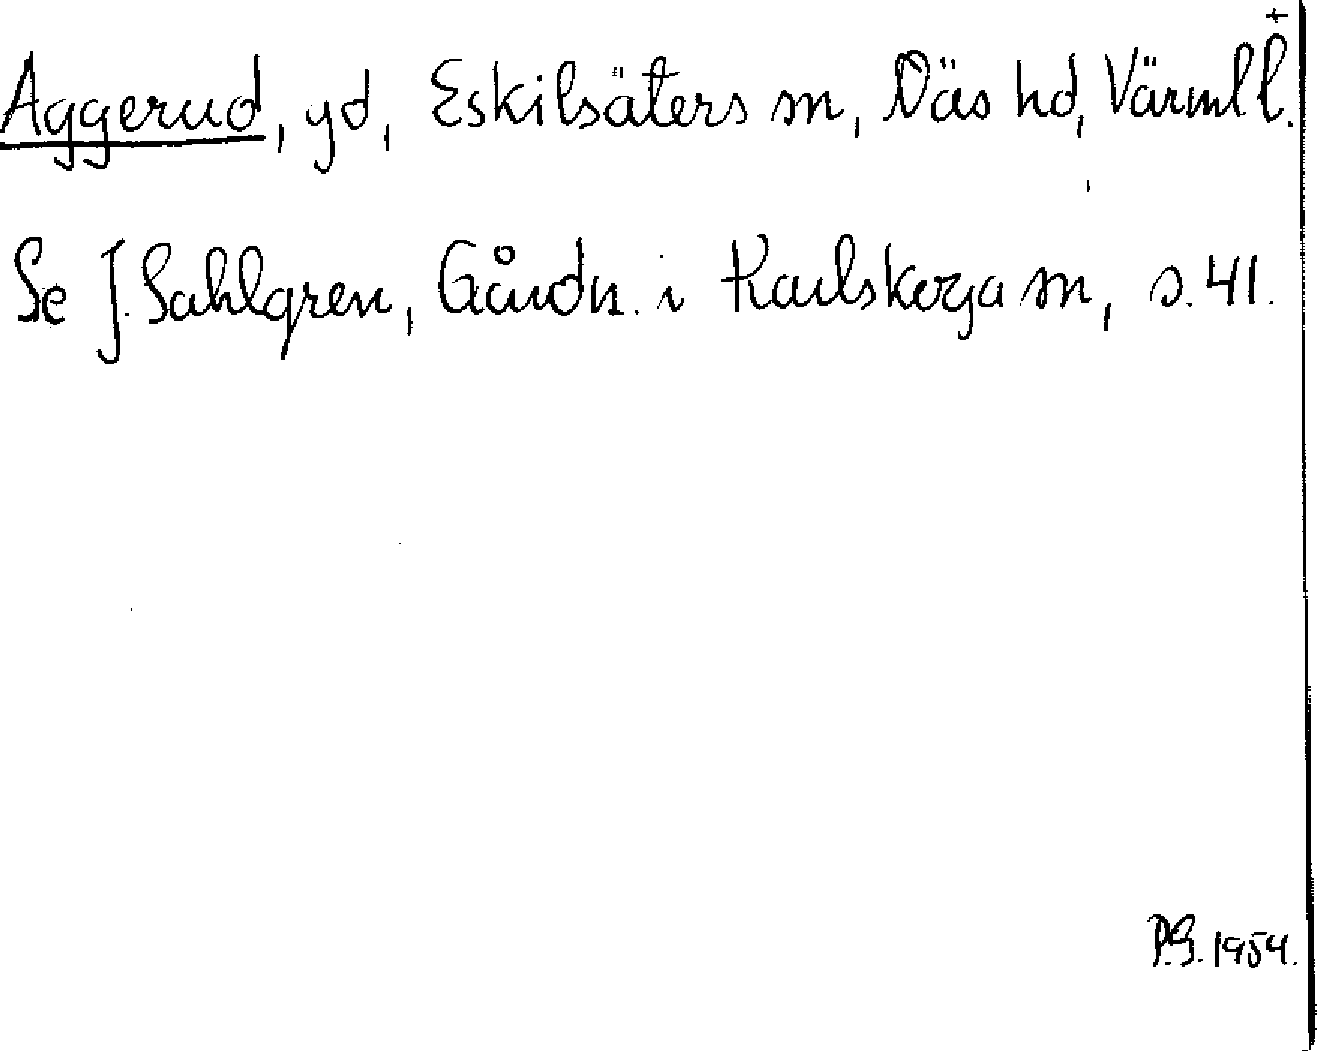 +
Aggerud, gd, Eskilsäters sn, Näs hd, Värml l.
Se J. Sahlgren, Gårdn. i Karlskoga sn, s. 41.
P.G. 1954.